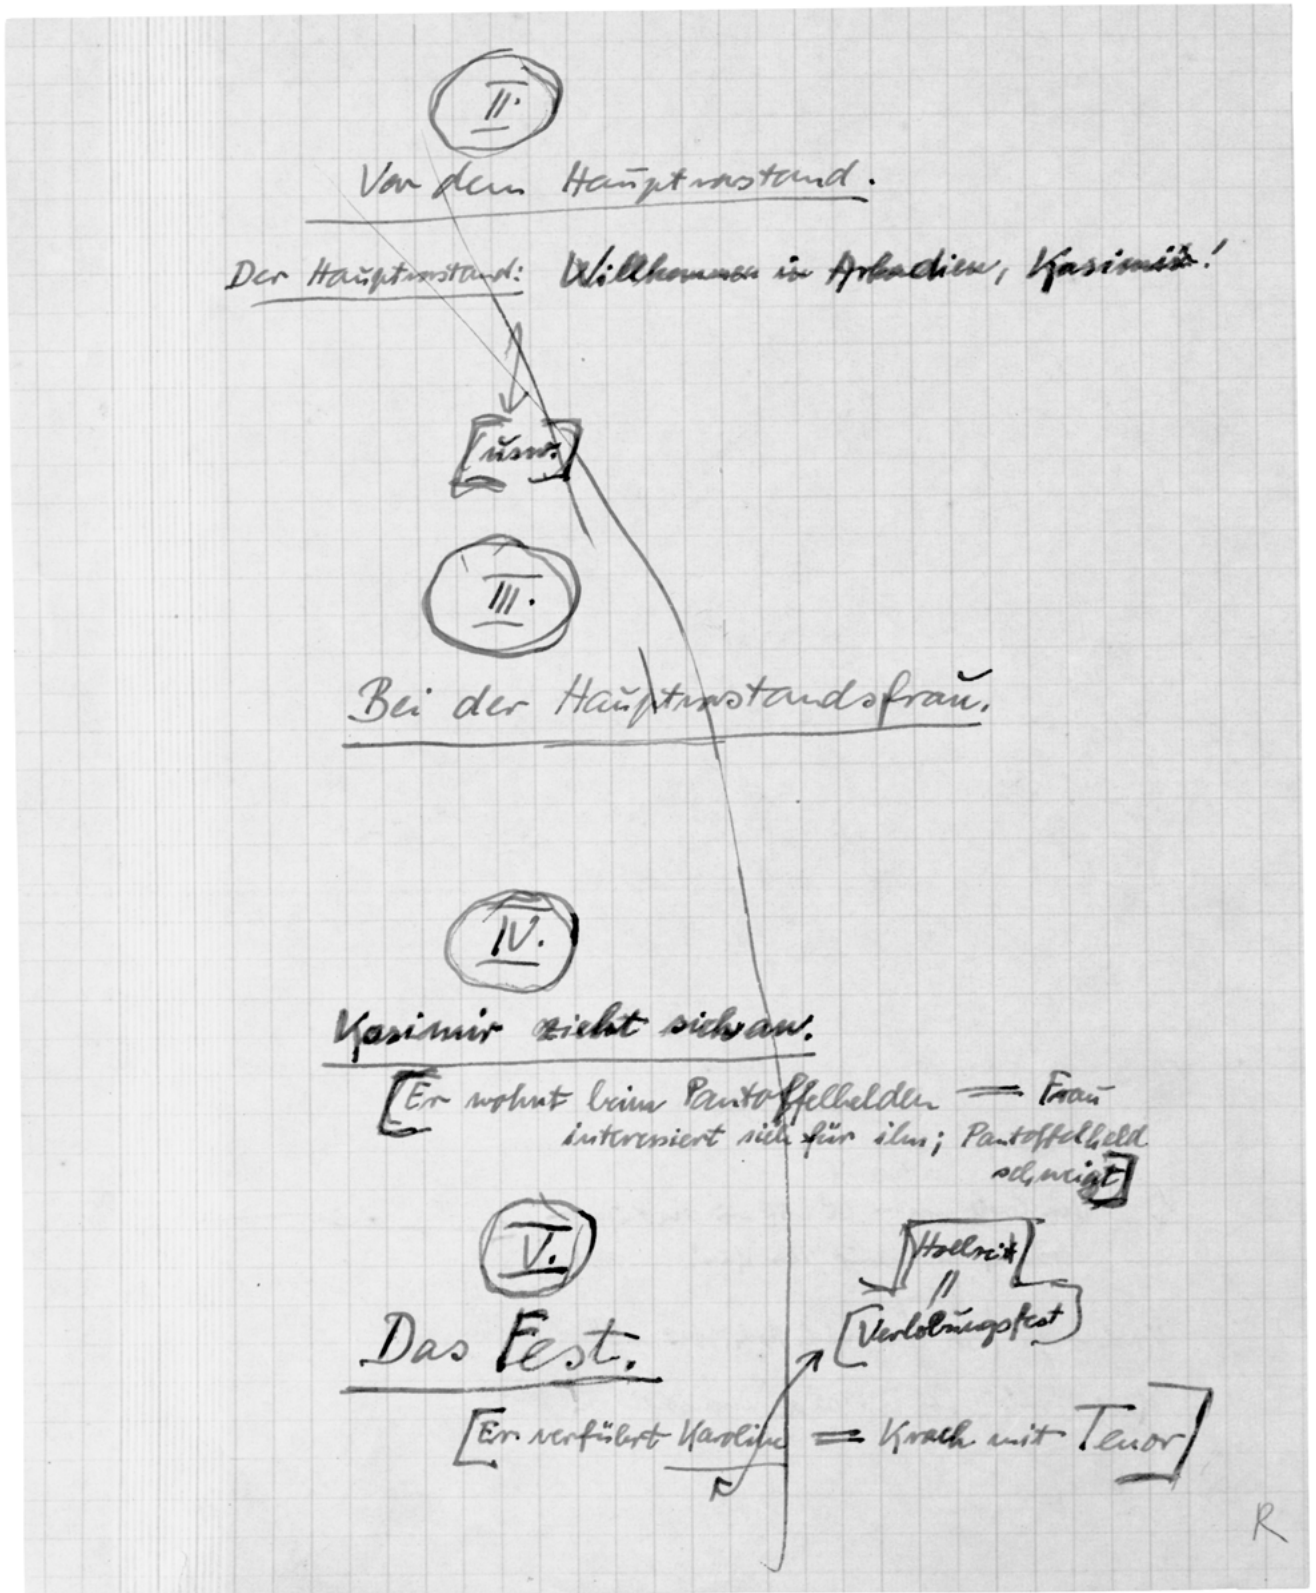 II.
Vor dem Hauptvorstand.
Der Hauptvorstand: Willkommen in Arkadien, Kasimir!
[usw.]
III.
Bei der Hauptvorstandsfrau.
IV.
Kasimir zieht sich an.
[Er wohnt beim Pantoffelhelden = Frau
interessiert sich für ihn; Pantoffelheld
schweigt]
V.
Das Fest.
=
[Verlobungsfest]
[Er verführt Karoline = Krach mit Tenor]
R